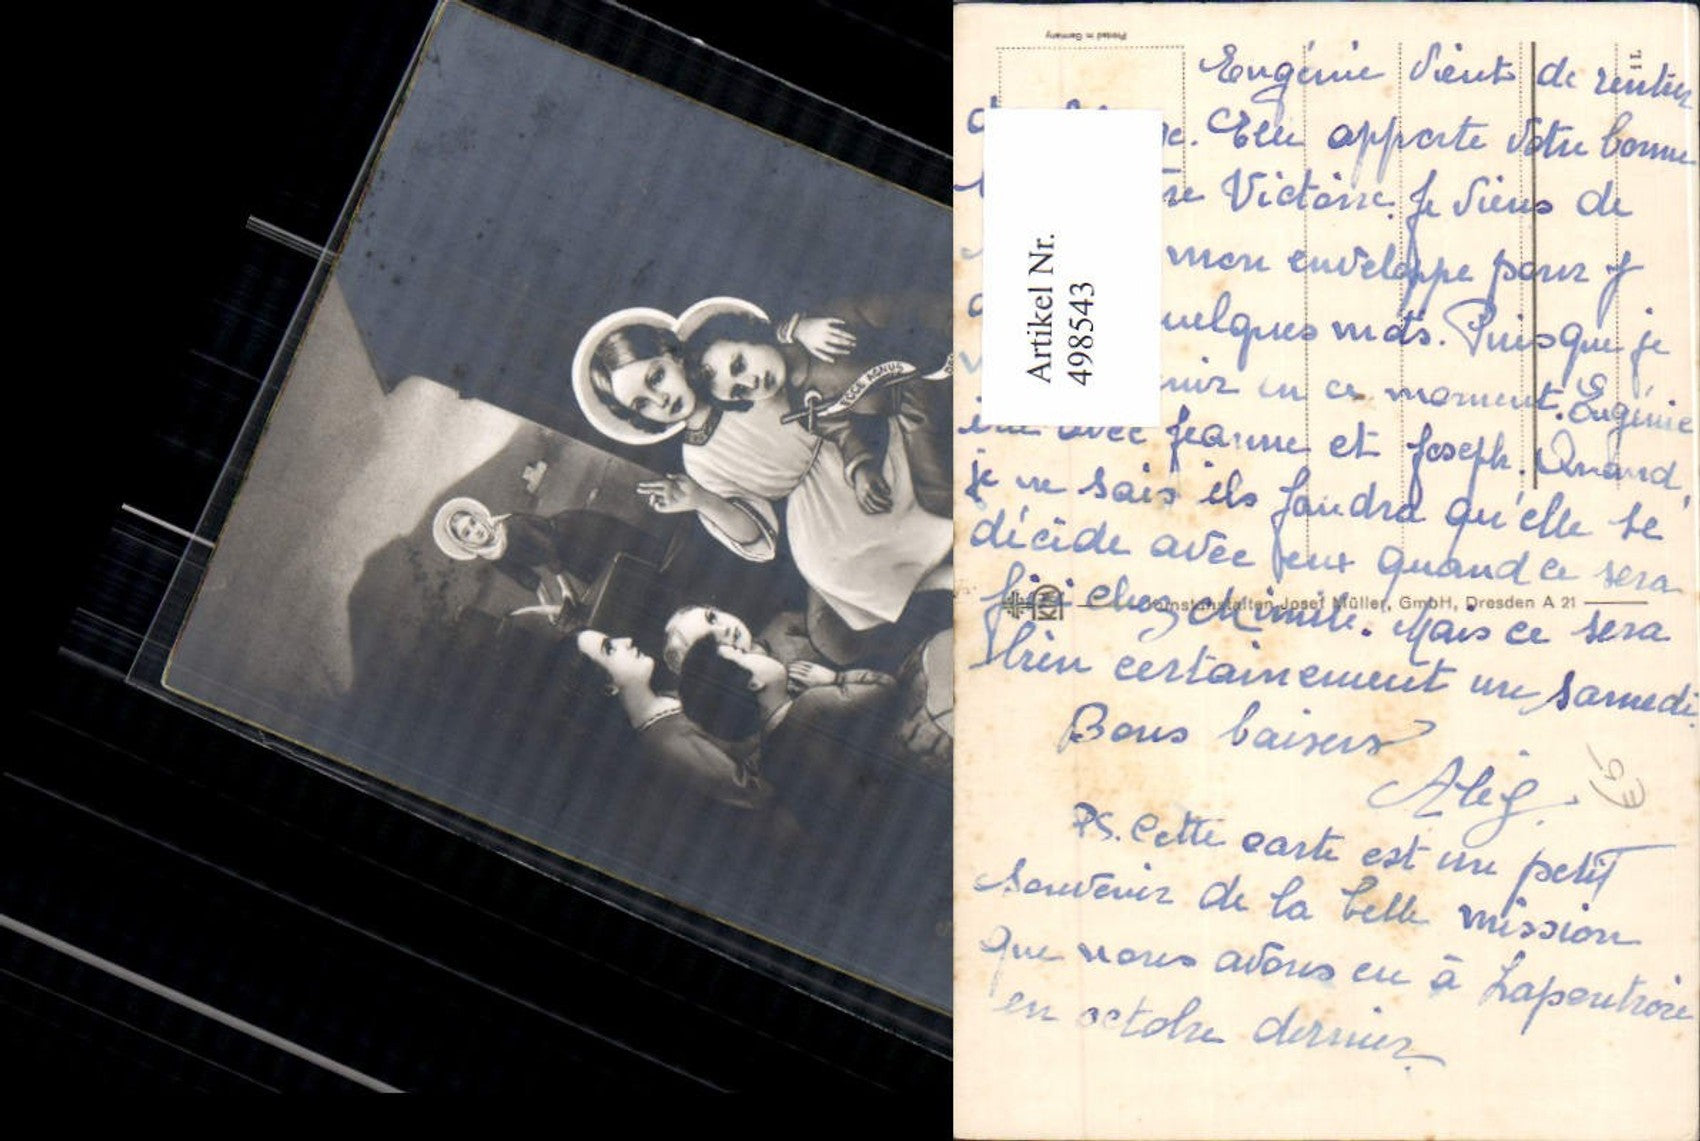 ECCE AGNUS
Printed in Germany
Eugénie vient de rentrer
Elle apporte votre bonne
Victoire. Je viens de
mon enveloppe pour y
quelques mots. Puisque je
en ce moment. Eugénie
avec Jeanne et Joseph. Quand,
je ne sais ils faudra qu'elle se
décide avec eux quand ce sera
fini chez Mimile. Mais ce sera
Kunstanstalten Josef Müller, GmbH, Dresden A 21
bien certainement un samedi.
Bons baisers
PS. Cette carte est un petit
souvenir de la belle mission
que nous avons eu à Lapoutroie
en octobre dernier.
Artikel Nr.
498543